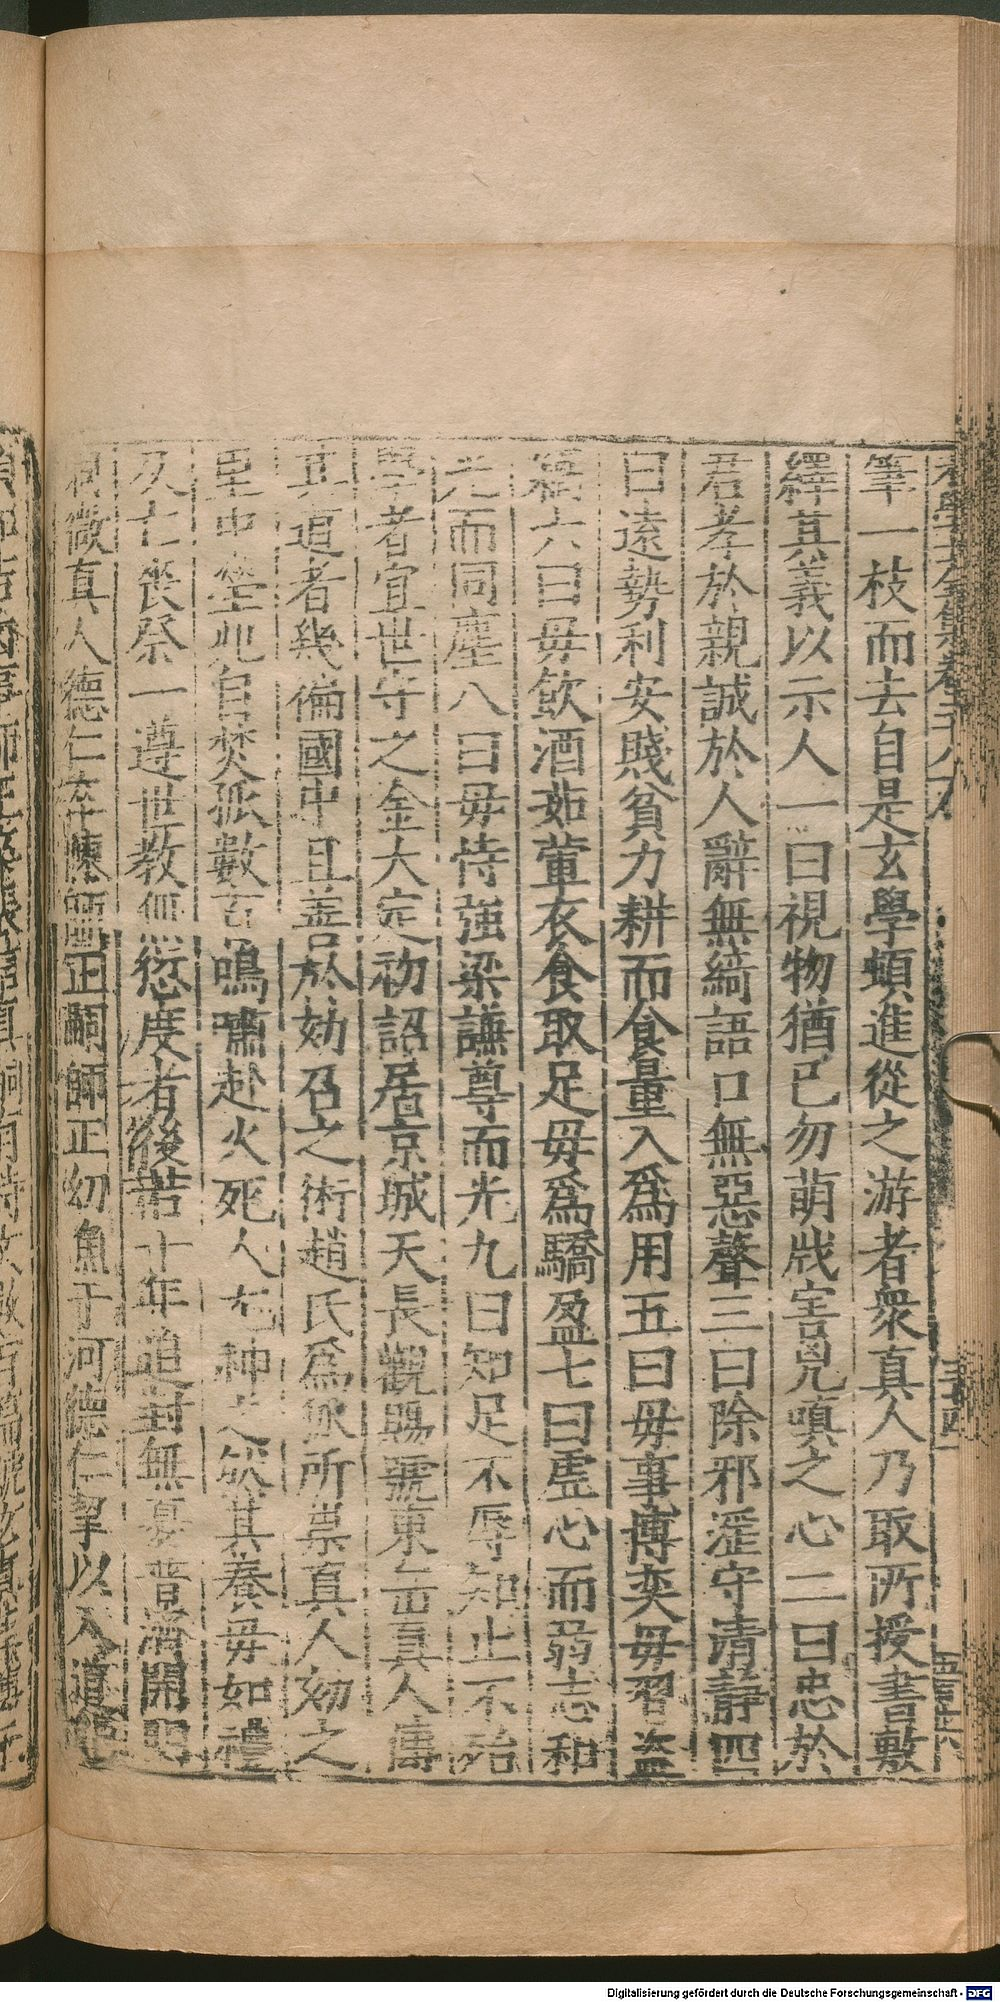 筆一枝而去自是玄學頓進從之游者衆真人乃取所授書敷
繹其義以示人一曰視物猶己勿萌戕害兇嗔之心二曰忠於
君孝於親誠於人辭無綺語口無惡聲三曰除邪淫守清靜四
曰遠勢利安賤貧力耕而食量入爲用五曰毋事博奕毋習盜
竊六曰毋飲酒茹葷衣食取足毋爲驕盈七曰虛心而弱志和
光而同塵八曰毋恃強梁謙尊而光九曰知足不辱知止不殆
學者宜世守之金大定初詔居京城天長觀賜號東岳真人傳
其道者幾徧國中且善於劾召之術趙氏爲狐所祟真人劾之
里中塋兆自焚狐數百鳴嘯赴火死人尤神之然其養毋如禮
久亡喪祭一遵世教無愆度者後若干年追封無憂普濟開明
洞微真人德仁卒陳師正嗣師正幼魚于河德仁挈以入道
Digitalisierung gefördert durch die Deutsche Forschungsgemeinschaft - DFG